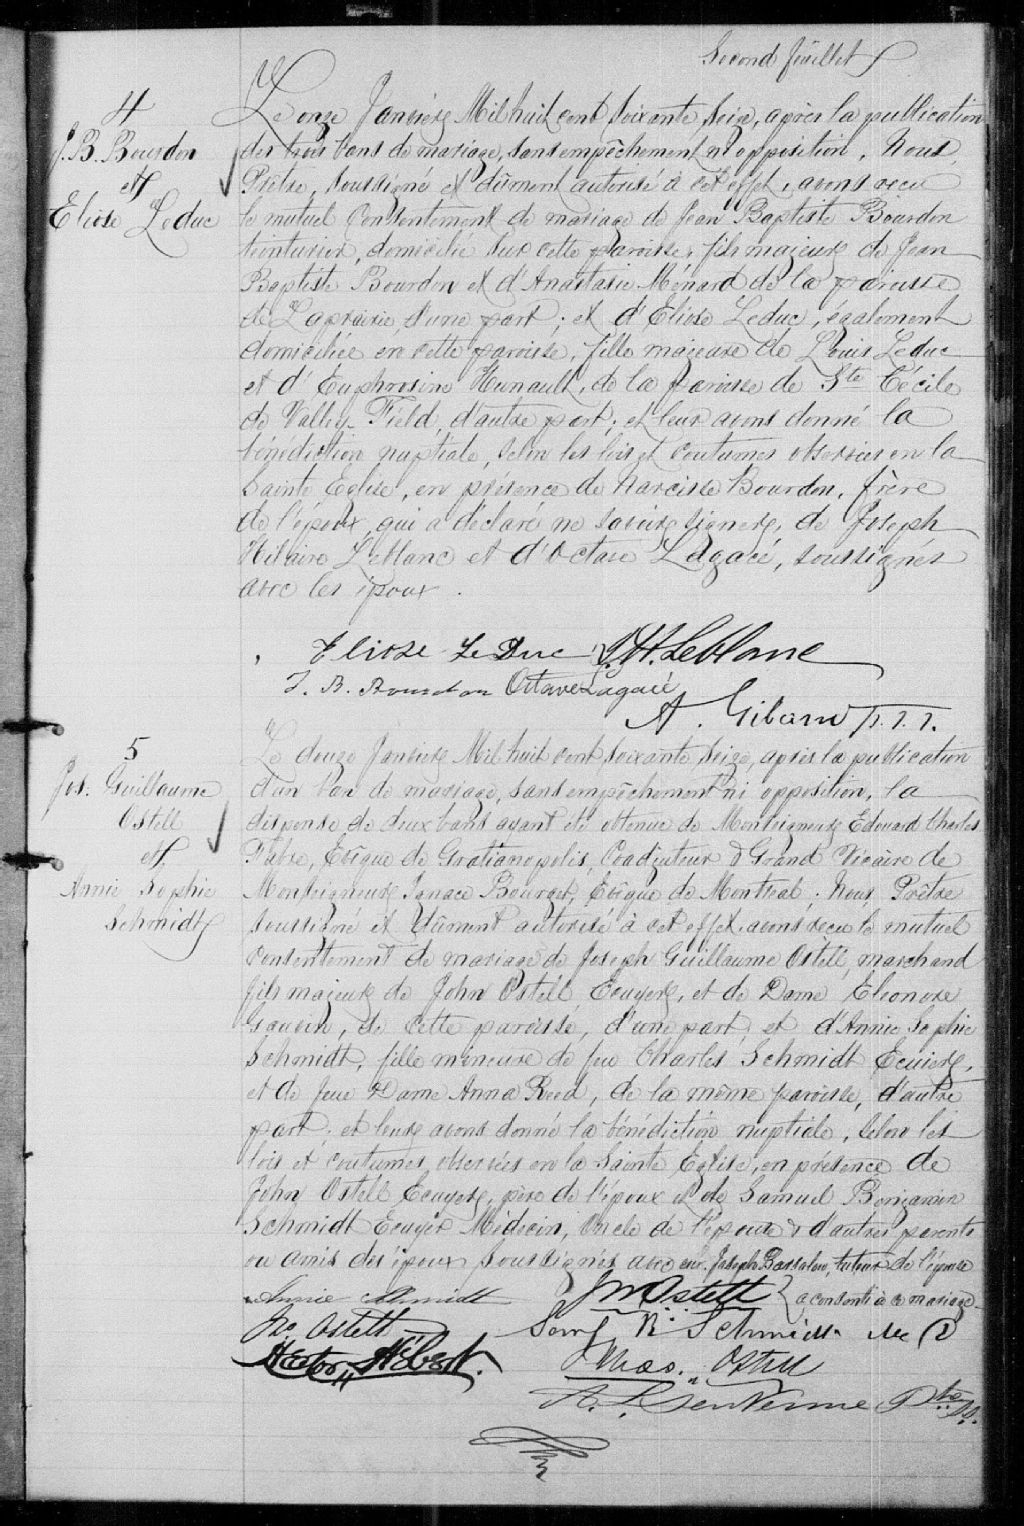 Second feuillet
4
J. B. Bourdon
et
Eliose Leduc
Le onze Janvier Mil huit cent soixante seize, après la publication
des trois bans de mariage, sans empêchement ni opposition, Nous,
Prêtre, soussigné et dûment autorisé à cet effet, avons reçu
le mutuel consentement de mariage de Jean Baptiste Bourdon
teinturier, domicilié sur cette paroisse, fils majeur de Jean
Baptiste Bourdon et d'Anastasie Ménard de la paroisse
de Laprairie d'une part; et d'Eliose Leduc, également
domiciliée en cette paroisse, fille majeure de Louis Leduc
et d'Euphrosine Hunault, de la paroisse de Ste Cécile
de Valley-Field, d'autre part; et leur avons donné la
bénédiction nuptiale, selon les lois et coutumes observées en la
Sainte Eglise, en présence de Narcisse Bourdon, frère
de l'époux qui a déclaré ne savoir signer, de Joseph
Hilaire Leblanc et d'Octave Lagacé, soussignés
avec les époux.
Eliose Le Duc J. H. Leblanc
J. B. Bourdon Octave Lagacé
A.
5
Jos. Guillaume
Ostell
et
Annie Sophie
Schmidt
Le douze Janvier Mil huit cent soixante seize, après la publication
d'un ban de mariage, sans empêchement ni opposition, la
dispense de deux bans ayant été obtenue de Monseigneur Edouard Charles
Fabre, Evêque de Gratianopolis, Coadjuteur & Grand Vicaire de
Monseigneur Ignace Bourget, Evêque de Montréal; Nous Prêtre
soussigné et dûment autorisé à cet effet avons reçu le mutuel
consentement de mariage de Joseph Guillaume Ostell, marchand
fils majeur de John Ostell, Ecuyer, et de Dame Eleonore
Gauvin, de cette paroisse, d'une part, et d'Annie Sophie
Schmidt, fille mineure de feu Charles Schmidt Ecuier,
et de feue Dame Anna Reed, de la même paroisse, d'autre
part; et leur avons donné la bénédiction nuptiale, selon les
lois et coutumes observées en la Sainte Eglise, en présence de
John Ostell Ecuyer, père de l'époux et de Samuel Benjamin
Schmidt Ecuyer Médecin, Oncle de l'épouse & d'autres parents
ou amis des époux soussignés avec eux. Joseph Barsalou, tuteur de l'épouse
a consenti à ce mariage.
Annie Schmidt J W Ostell
Jno Ostell Saml B. Schmidt M D
Hector Hébert. Thos. Ostell